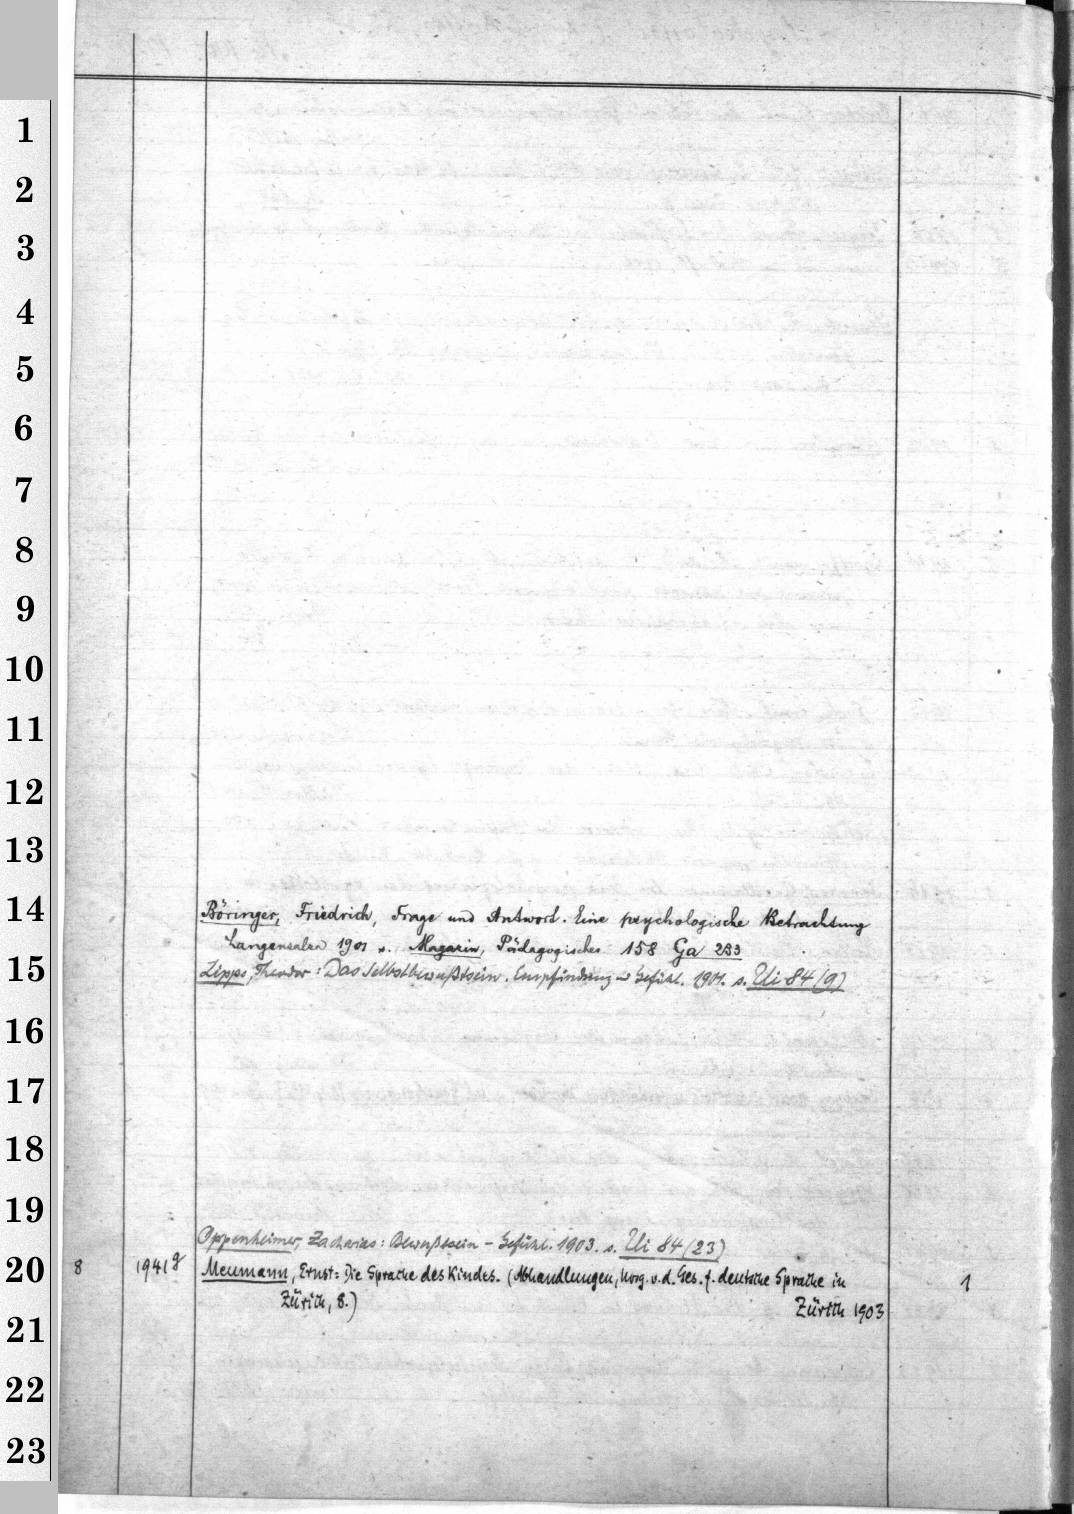 1
2
3
4
5
6
7
8
9
10
11
12
13
14
Böringer, Friedrich, Frage und Antwort. Eine psychologische Betrachtung
Langensalza 1901 s. Magazin, Pädagogisches 158 Ga 233
15
Lipps, Theodor: Das Selbstbewußtsein. Empfindung u Gefühl. 1901. s. Eli 84 (9)
16
17
18
19
Oppenheimer, Zacharias: Bewußtsein - Gefühl. 1903. s. Eli 84 (23)
20 8 1941g Meumann, Ernst: Die Sprache des Kindes. (Abhandlungen, hrsg. v. d. Ges. f. deutsche Sprache in 1
Zürich, 8.) Zürich 1903
21
22
23